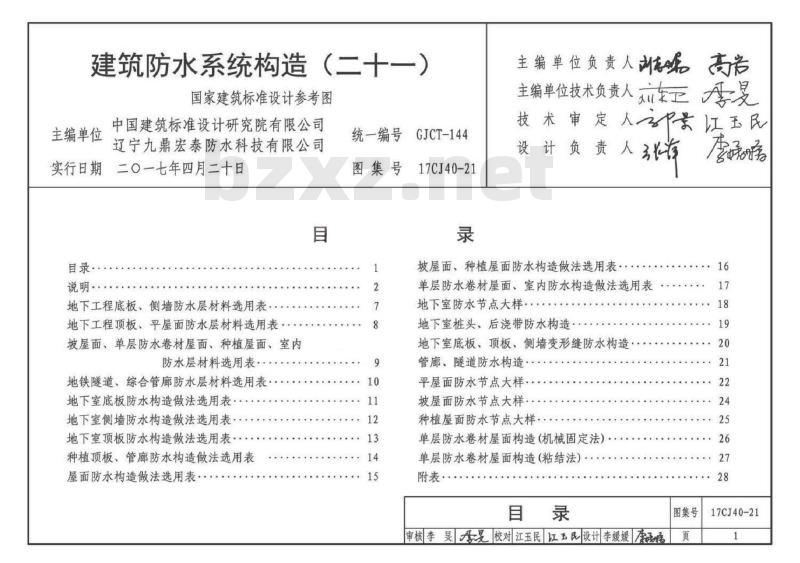 建筑防水系统构造（二十一）
国家建筑标准设计参考图
主编单位 中国建筑标准设计研究院有限公司
辽宁九鼎宏泰防水科技有限公司
统一编号 GJCT-144
实行日期 二〇一七年四月二十日
图集号 17CJ40-21
主编单位负责人 高岩
主编单位技术负责人 李昊
技术审定人 江玉民
设计负责人
bzxz.net
目 录
目录 1
说明 2
地下工程底板、侧墙防水层材料选用表 7
地下工程顶板、平屋面防水层材料选用表 8
坡屋面、单层防水卷材屋面、种植屋面、室内
防水层材料选用表 9
地铁隧道、综合管廊防水层材料选用表 10
地下室底板防水构造做法选用表 11
地下室侧墙防水构造做法选用表 12
地下室顶板防水构造做法选用表 13
种植顶板、管廊防水构造做法选用表 14
屋面防水构造做法选用表 15
坡屋面、种植屋面防水构造做法选用表 16
单层防水卷材屋面、室内防水构造做法选用表 17
地下室防水节点大样 18
地下室桩头、后浇带防水构造 19
地下室底板、顶板、侧墙变形缝防水构造 20
管廊、隧道防水构造 21
平屋面防水节点大样 22
坡屋面防水节点大样 24
种植屋面防水节点大样 25
单层防水卷材屋面构造(机械固定法) 26
单层防水卷材屋面构造(粘结法) 27
附表 28
目 录
图集号 17CJ40-21
审核 李昊 李昊 校对 江玉民 江玉民 设计 李媛媛 页 1